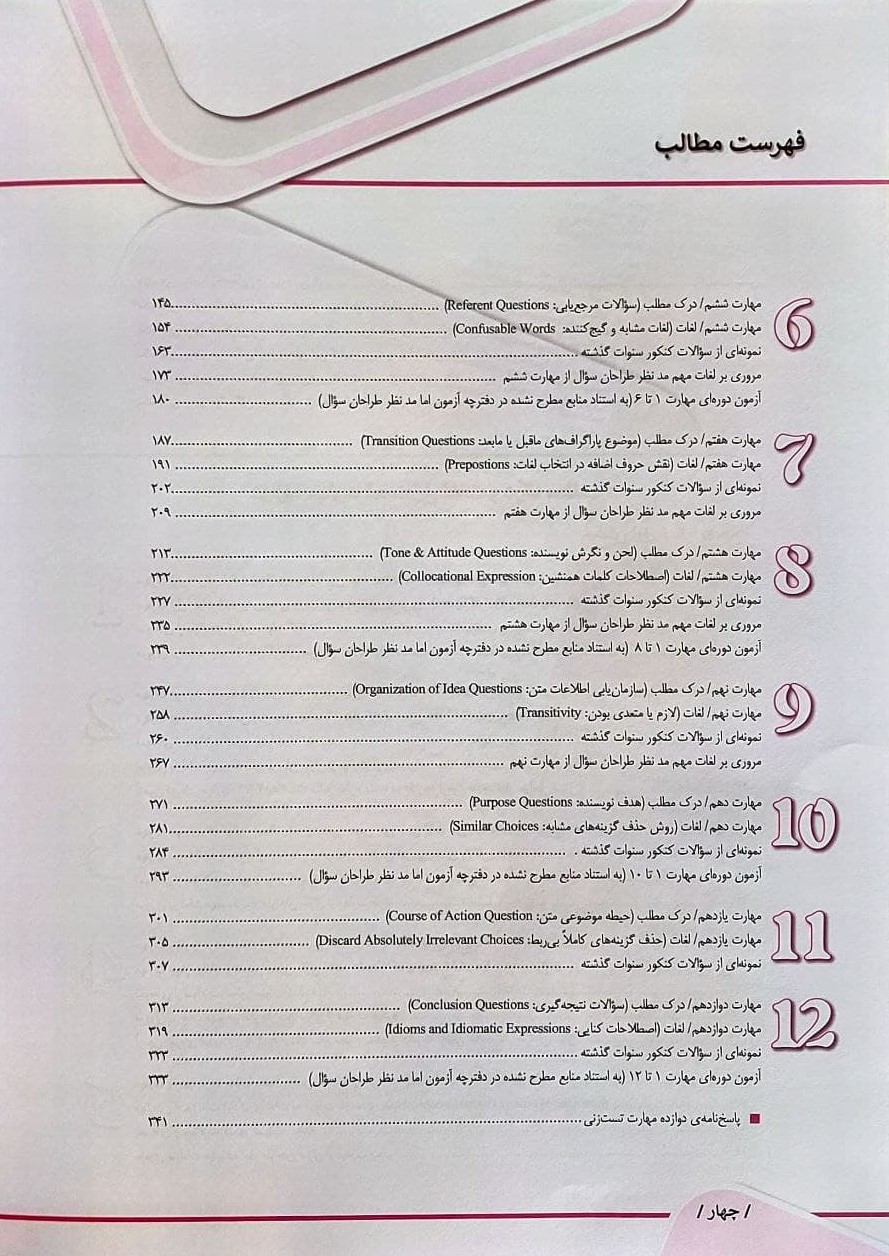 فهرست مطالب
6
مهارت ششم/ درک مطلب (سؤالات مرجع‌یابی: Referent Questions) ۱۴۵
مهارت ششم/ لغات (لغات مشابه و گیج‌کننده: Confusable Words) ۱۵۴
نمونه‌ای از سؤالات کنکور سنوات گذشته ۱۶۳
مروری بر لغات مهم مد نظر طراحان سؤال از مهارت ششم ۱۷۳
آزمون دوره‌ای مهارت ۱ تا ۶ (به استناد منابع مطرح نشده در دفترچه آزمون اما مد نظر طراحان سؤال) ۱۸۰
7
مهارت هفتم/ درک مطلب (موضوع پاراگراف‌های ماقبل یا مابعد: Transition Questions) ۱۸۷
مهارت هفتم/ لغات (نقش حروف اضافه در انتخاب لغات: Prepostions) ۱۹۱
نمونه‌ای از سؤالات کنکور سنوات گذشته ۲۰۲
مروری بر لغات مهم مد نظر طراحان سؤال از مهارت هفتم ۲۰۹
8
مهارت هشتم/ درک مطلب (لحن و نگرش نویسنده: Tone & Attitude Questions) ۲۱۳
مهارت هشتم/ لغات (اصطلاحات کلمات همنشین: Collocational Expression) ۲۲۲
نمونه‌ای از سؤالات کنکور سنوات گذشته ۲۲۷
مروری بر لغات مهم مد نظر طراحان سؤال از مهارت هشتم ۲۳۵
آزمون دوره‌ای مهارت ۱ تا ۸ (به استناد منابع مطرح نشده در دفترچه آزمون اما مد نظر طراحان سؤال) ۲۳۹
9
مهارت نهم/ درک مطلب (سازمان‌یابی اطلاعات متن: Organization of Idea Questions) ۲۴۷
مهارت نهم/ لغات (لازم یا متعدی بودن: Transitivity) ۲۵۸
نمونه‌ای از سؤالات کنکور سنوات گذشته ۲۶۰
مروری بر لغات مهم مد نظر طراحان سؤال از مهارت نهم ۲۶۷
10
مهارت دهم/ درک مطلب (هدف نویسنده: Purpose Questions) ۲۷۱
مهارت دهم/ لغات (روش حذف گزینه‌های مشابه: Similar Choices) ۲۸۱
نمونه‌ای از سؤالات کنکور سنوات گذشته ۲۸۴
آزمون دوره‌ای مهارت ۱ تا ۱۰ (به استناد منابع مطرح نشده در دفترچه آزمون اما مد نظر طراحان سؤال) ۲۹۳
11
مهارت یازدهم/ درک مطلب (حیطه موضوعی متن: Course of Action Question) ۳۰۱
مهارت یازدهم/ لغات (حذف گزینه‌های کاملاً بی‌ربط: Discard Absolutely Irrelevant Choices) ۳۰۵
نمونه‌ای از سؤالات کنکور سنوات گذشته ۳۰۷
12
مهارت دوازدهم/ درک مطلب (سؤالات نتیجه‌گیری: Conclusion Questions) ۳۱۳
مهارت دوازدهم/ لغات (اصطلاحات کنایی: Idioms and Idiomatic Expressions) ۳۱۹
نمونه‌ای از سؤالات کنکور سنوات گذشته ۳۲۳
آزمون دوره‌ای مهارت ۱ تا ۱۲ (به استناد منابع مطرح نشده در دفترچه آزمون اما مد نظر طراحان سؤال) ۳۳۳
پاسخ‌نامه‌ی دوازده مهارت تست‌زنی ۳۴۱
/ چهار /